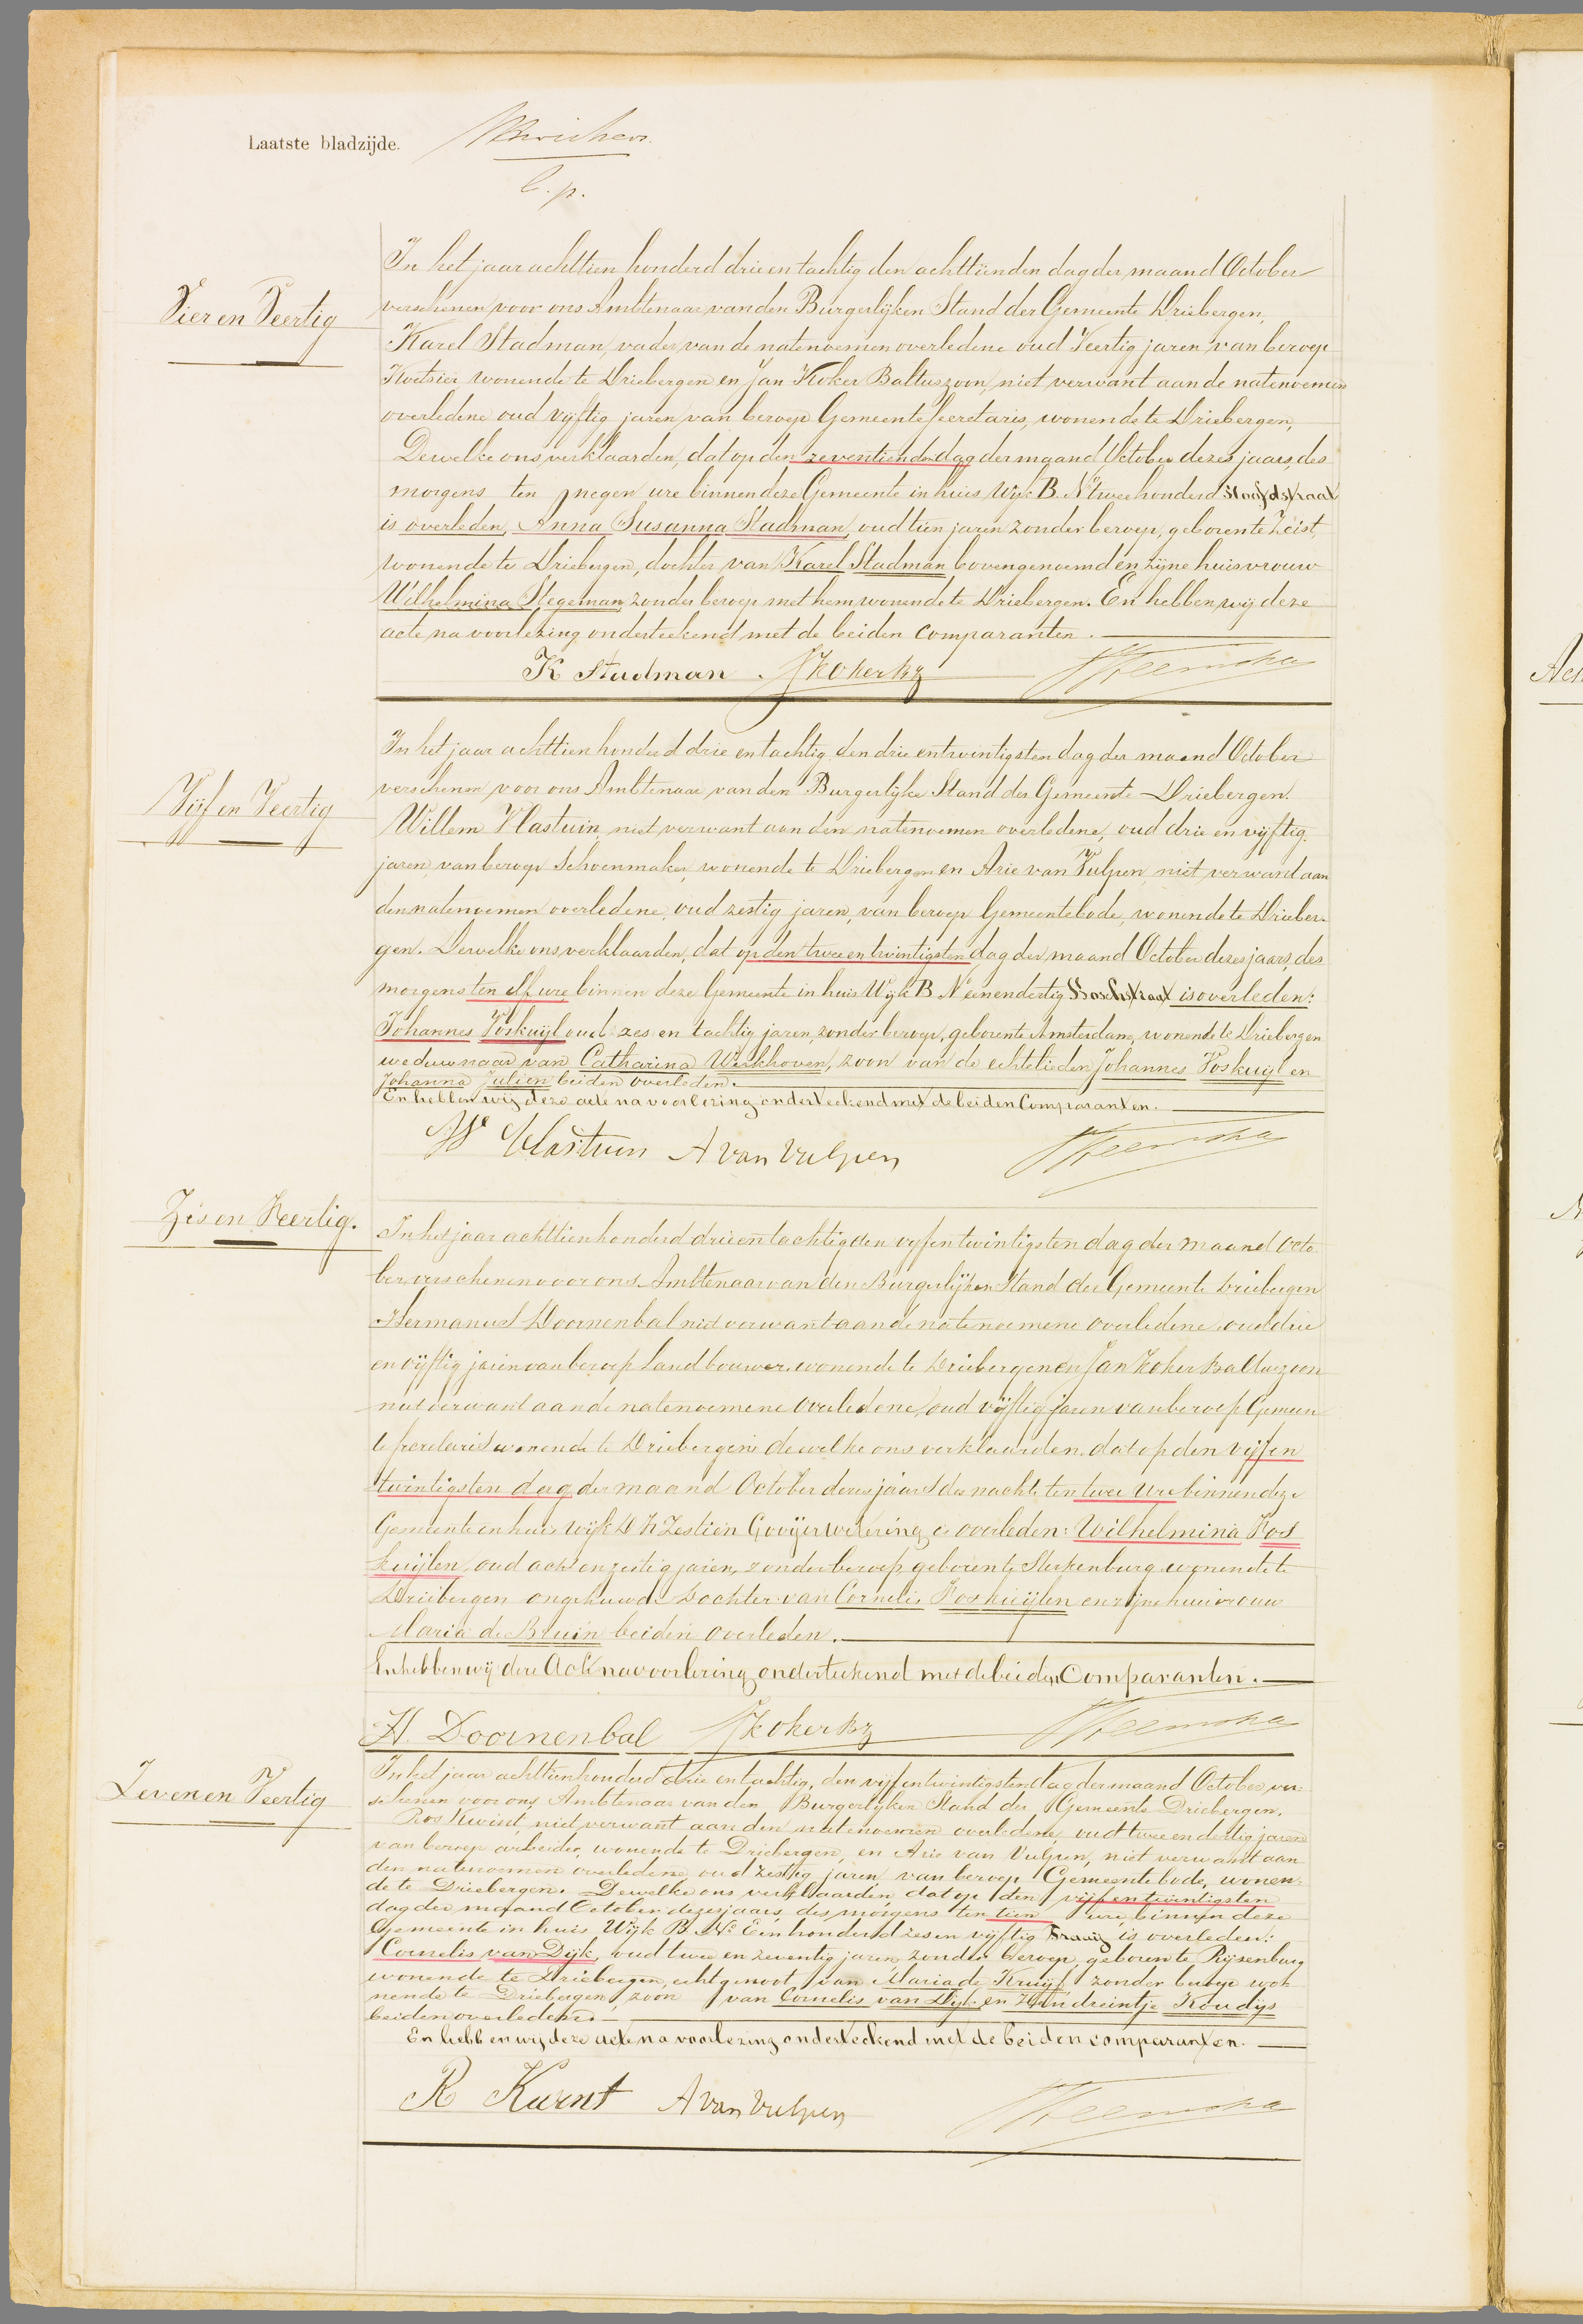 Laatste bladzijde.
l. p.
Vier en Veertig
In het jaar achttien honderd drie en tachtig den achttienden dag der maand October
verschenen voor ons Ambtenaar van den Burgerlijken Stand der Gemeente Driebergen,
Karel Stadman, vader van de natenoemen overledene oud Veertig jaren van beroep
Koetsier wonende te Driebergen en Jan Koker Baltuszoon, niet verwant aan de natenoemen
overledene oud vijftig jaren van beroep Gemeente Secretaris, wonende te Driebergen,
Dewelke ons verklaarden, dat op den zeventienden dag der maand October dezes jaars, des
morgens ten negen ure binnen deze Gemeente in huis Wijk B. No twee honderd
is overleden, Anna Susanna Stadman, oud tien jaren zonder beroep, geboren te Zeist,
wonende te Driebergen, dochter van Karel Stadman bovengenoemd en zijne huisvrouw
Wilhelmina Stegeman zonder beroep met hem wonende te Driebergen. En hebben wij deze
acte na voorlezing onderteekend met de beiden comparanten.
K Stadman JKoker Bz
Vijf en Veertig
In het jaar achttien honderd drie en tachtig den drie en twintigsten dag der maand October
verschenen voor ons Ambtenaar van den Burgerlijke Stand der Gemeente Driebergen.
Willem Vlastuin, niet verwant aan den natenoemen overledene, oud drie en vijftig
jaren, van beroep Schoenmaker, wonende te Driebergen en Arie van Vulpen, niet verward aan
den natenoemen overledene, oud zestig jaren, van beroep Gemeentebode, wonende te Drieber-
gen. Dewelke ons verklaarden, dat op den twee en twintigsten dag der maand October dezes jaars, des
morgens ten elf ure binnen deze Gemeente in huis Wijk B No eenendertig Boschstraat is overleden:
Johannes Voskuijl oud zes en tachtig jaren, zonder beroep, geboren te Amsterdam, wonende te Driebergen
weduwnaar van Catharina Werkhoven, zoon van de echtelieden Johannes Voskuijl en
Johanna Julien beiden overleden.
En hebben wij deze acte na voorlezing onderteekend met de beiden Comparanten.
W Vlastuin A van Vulpen
Zes en Veertig.
In het jaar achttien honderd drie en tachtig den vijf en twintigsten dag der maand Octo
ber, verschenen voor ons Ambtenaar van den Burgerlijken Stand der Gemeente Driebergen
Hermanus Doornenbal niet verwant aan de natenoemene overledene, oud drie
en vijftig jaren van beroep Landbouwer, wonende te Driebergen en Jan Koker Baltuszoon
niet verwant aan de natenoemene overledene, oud vijftig jaren van beroep Gemeen
te secretaris wonende te Driebergen dewelke ons verklaarden, dat op den vijf en
twintigsten dag der maand October dezes jaars des nachts ten twee ure binnen deze
Gemeente in huis wijk D No Zestien Gooyerwetering is overleden: Wilhelmina Vos
kuijlen, oud acht en zestig jaren, zonder beroep, geboren te Sterkenburg wonende te
Driebergen ongehuwd Dochter van Cornelis Voskuijlen en zijne huisvrouw
Maria de Bruin beiden overleden.
En hebben wij deze Acte na voorlezing onderteekend met de beiden Comparanten.
H. Doornenbal JKoker Bz
Zeven en Veertig
In het jaar achttien honderd drie en tachtig, den vijf en twintigsten dag der maand October, ver-
schenen voor ons Ambtenaar van den Burgerlijken Stand der Gemeente Driebergen.
niet verwant aan den natenoemen overledene, oud twee en dertig jaren
van beroep arbeider, wonende te Driebergen, en Arie van Vulpen, niet verwandt aan
den natenoemen overledene, oud zestig jaren van beroep Gemeentebode, wonen-
de te Driebergen. Dewelke ons verklaarden, dat op den vijf en twintigsten
dag der maand October dezes jaars, des morgens ten tien ure, binnen deze
Gemeente in huis Wijk B No Een honderd zes en vijftig is overleden:
Cornelis van Dijk, oud twee en zeventig jaren, zonder beroep, geboren te Rijsenburg
wonende te Driebergen, echtgenoot van Maria de Kruijf zonder beroep wo-
nende te Driebergen, zoon van Cornelis van Dijk en Hendreintje Koudijs
beiden overleden.
En hebben wij deze acte na voorlezing onderteekend met de beiden comparanten.
A van Vulpen